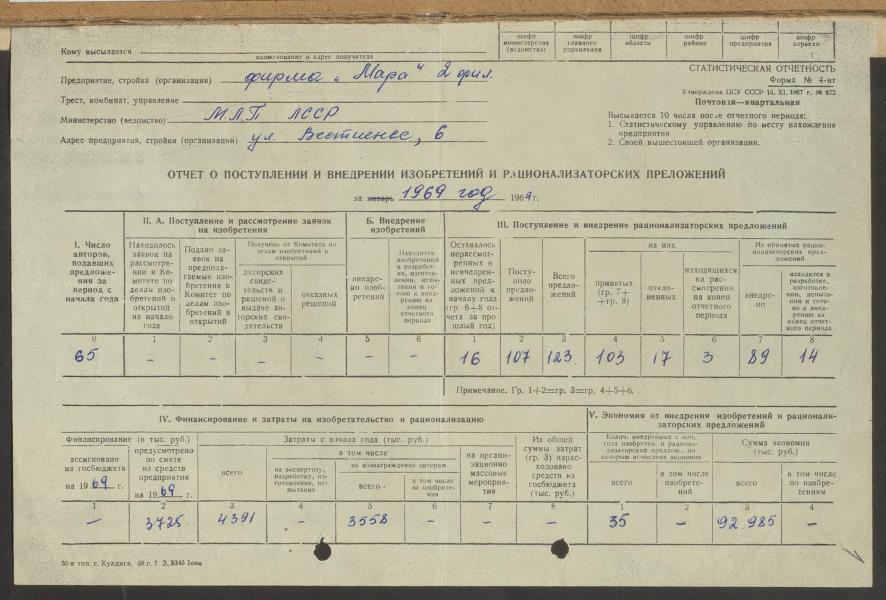 Кому высылается
наименование и адрес получателя
шифр министерства (ведомства)
шифр главного управления
шифр области
шифр района
шифр предприятия
шифр отрасли
СТАТИСТИЧЕСКАЯ ОТЧЕТНОСТЬ
Форма № 4-нт
Утверждена ЦСУ СССР 16. XI. 1967 г. № 672
Почтовая—квартальная
Высылается 10 числа после отчетного периода:
1. Статистическому управлению по месту нахождения
предприятия
2. Своей вышестоящей организации.
Предприятие, стройка (организация) фирма „Мара“ 2 фил.
Трест, комбинат, управление
Министерство (ведомство) МЛП ЛССР
Адрес предприятия, стройки (организации) ул. 6
ОТЧЕТ О ПОСТУПЛЕНИИ И ВНЕДРЕНИИ ИЗОБРЕТЕНИЙ И РАЦИОНАЛИЗАТОРСКИХ ПРЕЛОЖЕНИЙ
за январь 1969 год 1969 г.
I. Число авторов, подавших предложения за период с начала года
II. А. Поступление и рассмотрение заявок на изобретения
Находилось заявок на рассмотрении в Комитете по делам изобретений и открытий из начало года
Подано заявок на предполагаемые изобретения в Комитет по делам изобретений и открытий
Получено от Комитета по делам изобретений и открытий
авторских свидетельств и решений о выдаче авторских свидетельств
отказных решений
Б. Внедрение изобретений
внедрено изобретений
Находится изобретений в разработке, изготовлении, испытании и готово к внедрению на конец отчетного периода
III. Поступление и внедрение рационализаторских предложений
Оставалось нерассмотренных и невнедренных предложений к началу года (гр. 6+8 отчета за прошлый год)
Поступило предложений
Всего предложений
из них
принятых (гр. 7+ +гр. 8)
отклоненных
находящихся на рассмотрении на конец отчетного периода
Из принятых рационализаторских предложений
внедрено
находится в разработке, изготовлении, испытании и готово к внедрению на конец отчетного периода
0 1 2 3 4 5 6 1 2 3 4 5 6 7 8
65 – – – – – – 16 107 123 103 17 3 89 14
Примечание. Гр. 1+2=гр. 3=гр. 4+5+6.
IV. Финансирование и затраты на изобретательство и рационализацию
Финансирование (в тыс. руб.)
ассигновано из госбюджета на 1969 г.
предусмотрено по смете из средств предприятия на 1969 г.
Затраты с начала года (тыс. руб.)
всего
в том числе
на экспертизу, разработку, изготовление, испытание
на вознаграждение авторам
всего
в том числе за изобретения
на организационно массовые мероприятия
Из общей суммы затрат (гр. 3) израсходовано средств из госбюджета (тыс. руб.)
V. Экономия от внедрения изобретений и рационализаторских предложений
Колич. внедренных с нач. года изобретен. и рационализаторских предлож., по которым исчислена экономия
всего
в том числе изобретений
Сумма экономии (тыс. руб.)
всего
в том числе по изобретениям
1 2 3 4 5 6 7 8 1 2 3 4
– 3725 4391 – 3558 – – – 35 – 92.985 –
30-я тип. г. Кулдига. 68 г. 7 З. 2345 1000